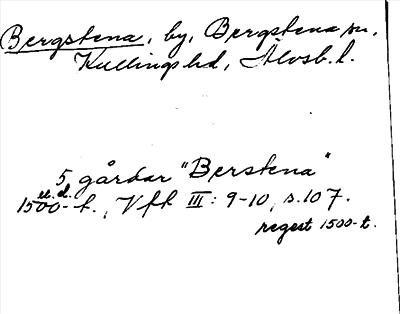 Bergstena, by, Bergstena sn,
Kullings hd, Älvsb. l.
5 gårdar "Berstena"
u.d.
1500-t., Vfh III: 9-10, s. 107.
regest 1500-t.